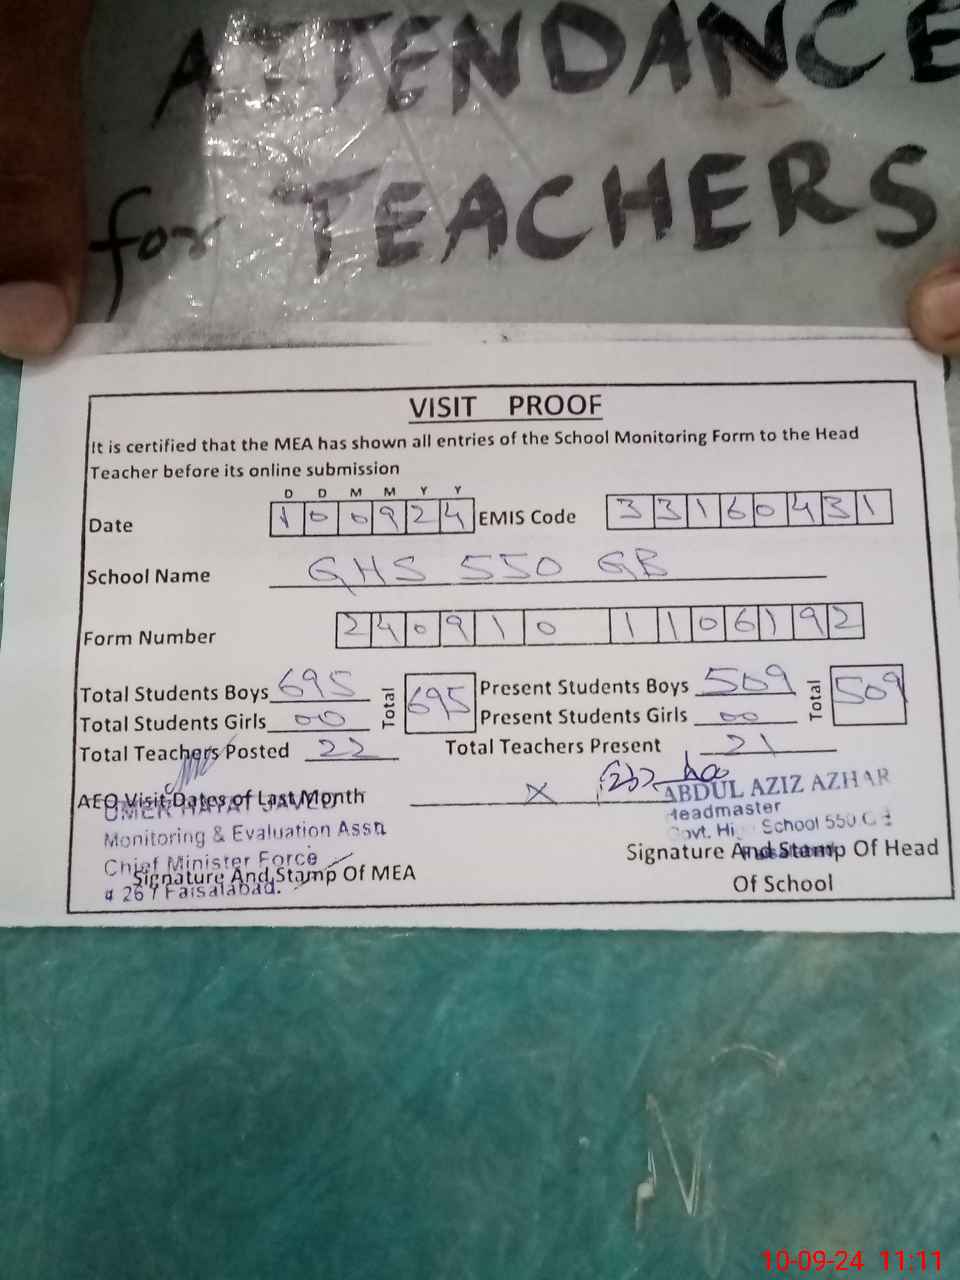 ATTENDANCE
for TEACHERS
VISIT PROOF
It is certified that the MEA has shown all entries of the School Monitoring Form to the Head
Teacher before its online submission
D D M M Y Y
Date 1 0 0 9 2 4 EMIS Code 3 3 1 6 0 4 3 1
School Name GHS 550 GB
Form Number 2 4 0 9 1 0 1 1 0 6 1 9 2
Total Students Boys 695 Total 695 Present Students Boys 509 Total 509
Total Students Girls 00 Present Students Girls 00
Total Teachers Posted 22 Total Teachers Present 21
AEO Visit Dates of Last Month X
UMER HAYAT JAVED
Monitoring & Evaluation Asstt
Chief Minister Force
# 267 Faisalabad.
Signature And Stamp Of MEA
ABDUL AZIZ AZHAR
Headmaster
Govt. High School 550 G B
Signature And Stamp Of Head
Of School
10-09-24 11:11